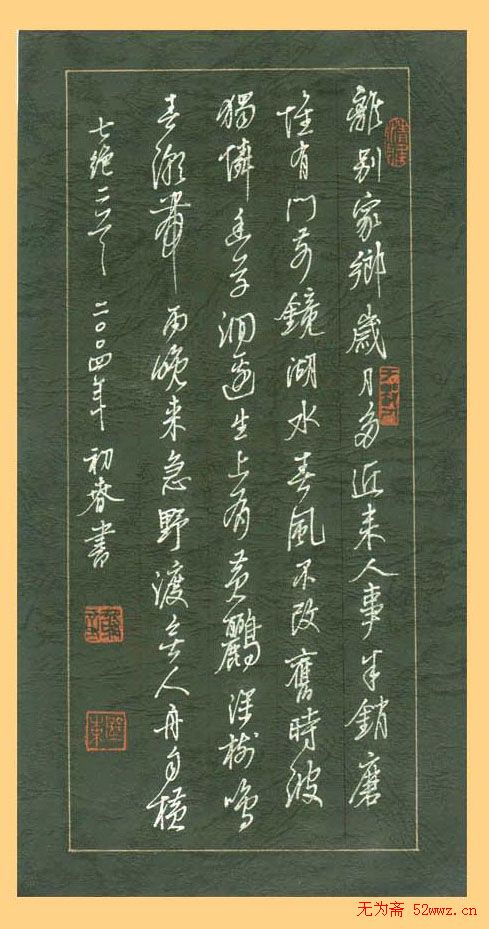 離別家鄉歲月多近來人事半銷磨
惟有門前鏡湖水春風不改舊時波
獨憐幽草澗邊生上有黃鸝深樹鳴
春潮帶雨晚來急野渡無人舟自橫
七絕二首 二〇〇四年初春書
无为斋 52wwz.cn